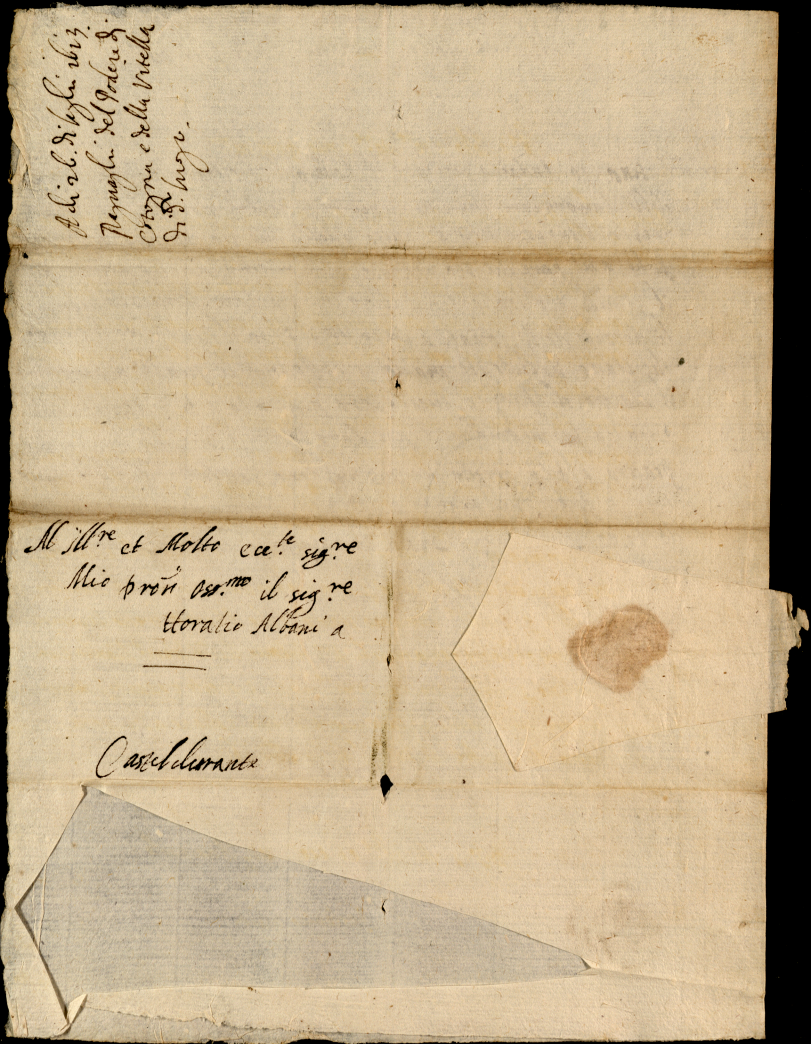 Adi 26. di luglio 1623.
Raguagli del Podere di
Cotogna e della Vitella
di S. Angº.
Al Ill.re et Molto ecc.te sig.re
Mio proñ oss.mo il sig.re
Horatio Albani a
Casteldurante